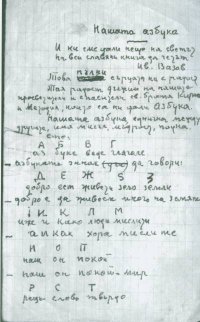 Нашата азбука
И ний сме дали нещо на светът
на вси славяни книга да четат
Ив. Вазов
Това
Тая радост дължим на нашите
просветители и спасители св. братя Кирил
и Методия, които са ни дали азбука.
Нашата азбука единна между
другите, има мисъл,
А Б В Г
аз буке веде глаголе
азбуката зная да говори
Д Е Ж S З
добро ест живеть зело земли
добро е да живееш много на земята
і И К Л М
иже и како люди мислити
а и как хора мислите
Н О П
наш он покой
наш он покой мир
Р С Т
рецы слово твърдо